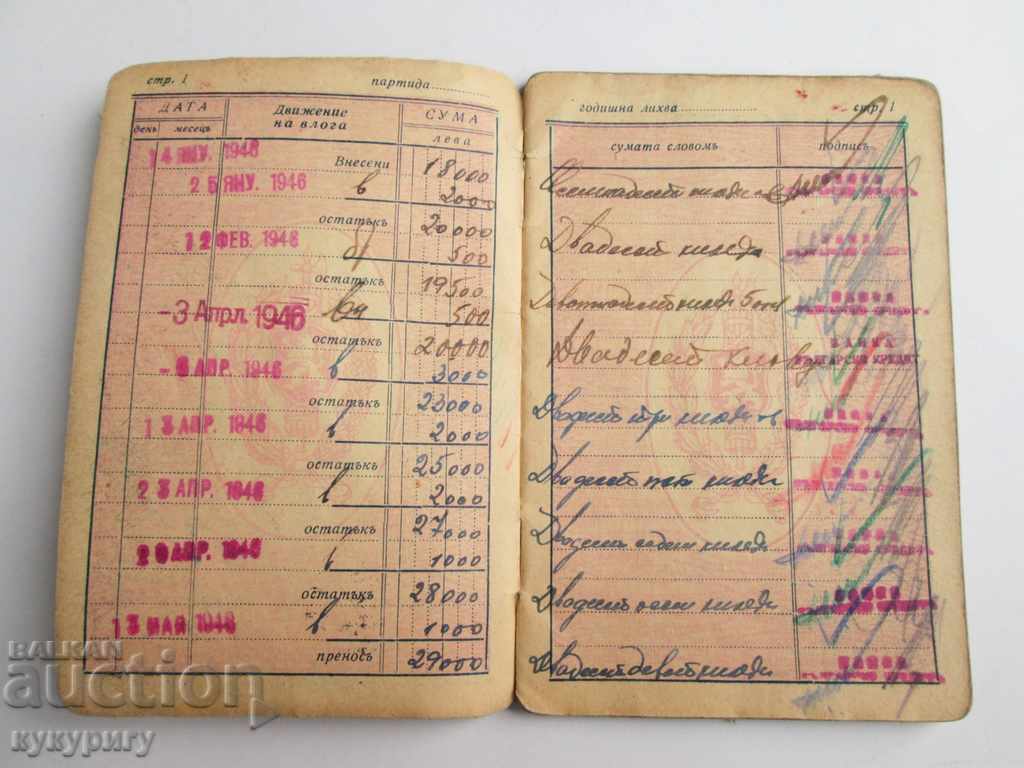 стр. 1 партида
ДАТА Движение на влога СУМА
день месецъ лева
14 ЯНУ. 1946 Внесени 18000
25 ЯНУ. 1946 в 2000
остатъкъ 20000
12 ФЕВ. 1946 500
остатъкъ 19500
-3 Апрл. 1946 500
остатъкъ 20000
-6 АПР. 1946 в 3000
остатъкъ 23000
13 АПР. 1946 в 2000
остатъкъ 25000
23 АПР. 1946 в 2000
остатъкъ 27000
29 АПР. 1946 в 1000
остатъкъ 28000
13 МАЙ 1946 в 1000
преносъ 29000
годишна лихва стр. 1
сумата словомъ подпись
Осемнадесет хиляди
Двадесет хиляди
Деветнадесет хиляди 5
Двадесет хиляди
БАНКА
БЪЛГАРСКИ КРЕДИТ
Двадесет три хиляди
Двадесет пет хиляди
Двадесет седем хиляди
Двадесет осем хиляди
Двадесет девет хиляди
BALKAN
auction
кукуригу